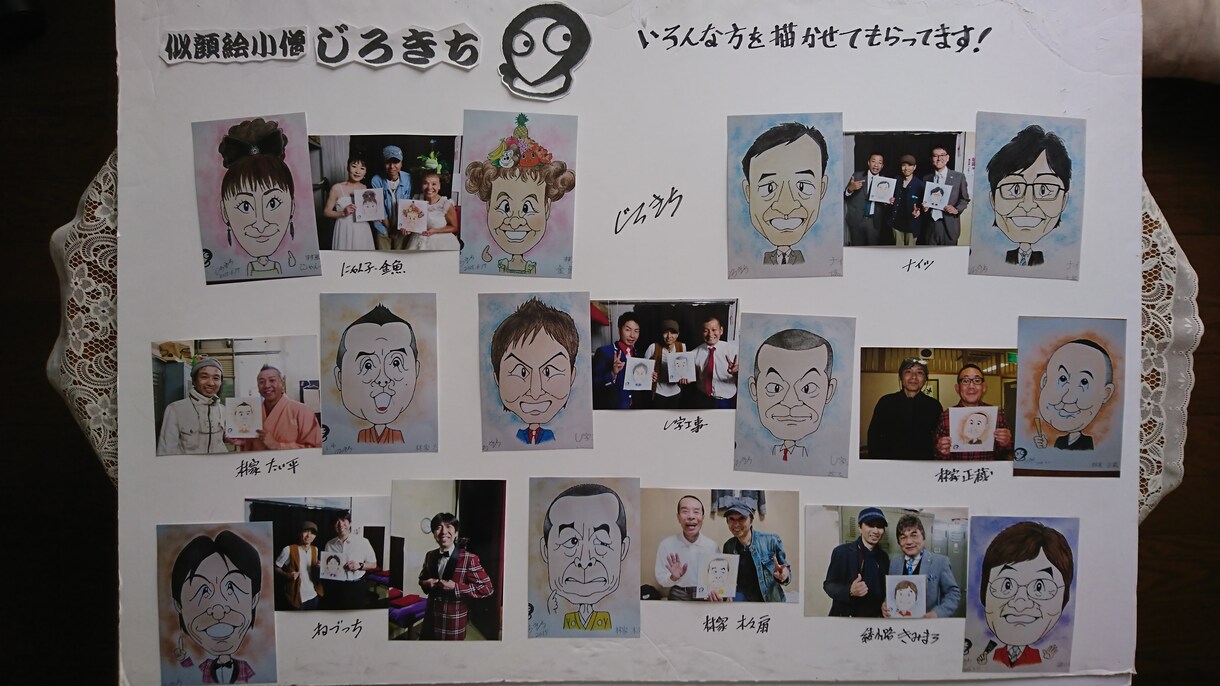 似顔絵小僧 じろきち
いろんな方を描かせてもらってます!
じろきち
にゃん子・金魚
ナイツ
林家 たい平
U字工事
林家 正蔵
ねづっち
林家 木久扇
綾小路 きみまろ